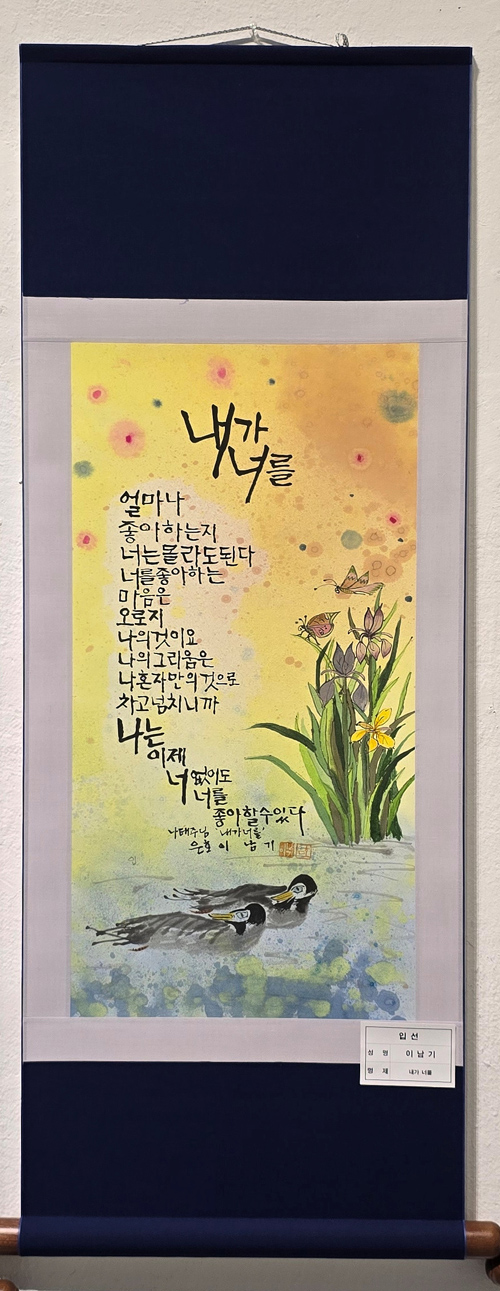 내가
너를
얼마나
좋아하는지
너는몰라도된다
너를좋아하는
마음은
오로지
나의것이요
나의그리움은
나혼자만의것으로
차고넘치니까
나는
이제
너없이도
너를
좋아할수있다
나태주님 '내가너를'
은호 이 남 기
입 선
성 명 이 남 기
명 제 내가 너를